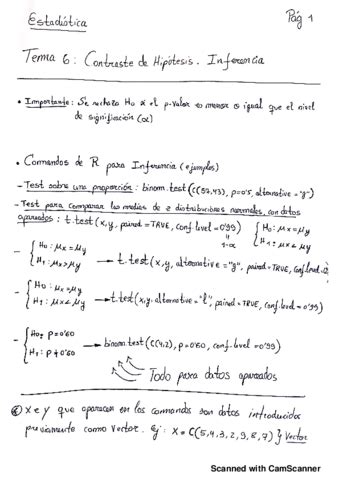 Estadística
Pág 1
Tema 6: Contraste de Hipótesis. Inferencia
• Importante: Se rechaza H0 si el p-valor es menor o igual que el nivel
de significación (α)
• Comandos de R para Inferencia (ejemplos)
- Test sobre una proporción: binom.test(c(52,43), p=0'5, alternative="g")
- Test para comparar las medias de 2 distribuciones normales, con datos
apareados: t.test(x,y, paired=TRUE, conf.level=0'99) { H0: μx=μy
1-α H1: μx≠μy
- { H0: μx=μy
H1: μx>μy → t.test(x,y, alternative="g", paired=TRUE, conf.level
- { H0: μx=μy
H1: μx<μy → t.test(x,y, alternative="l", paired=TRUE, conf.level=0'99)
- { H0: p=0'60
H1: p≠0'60 → binom.test(c(4,2), p=0'60, conf.level=0'99)
Todo para datos apareados
x e y que aparecen en los comandos son datos introducidos
previamente como vector. Ej: x=c(5,4,3,2,9,8,7) } Vector
Scanned with CamScanner